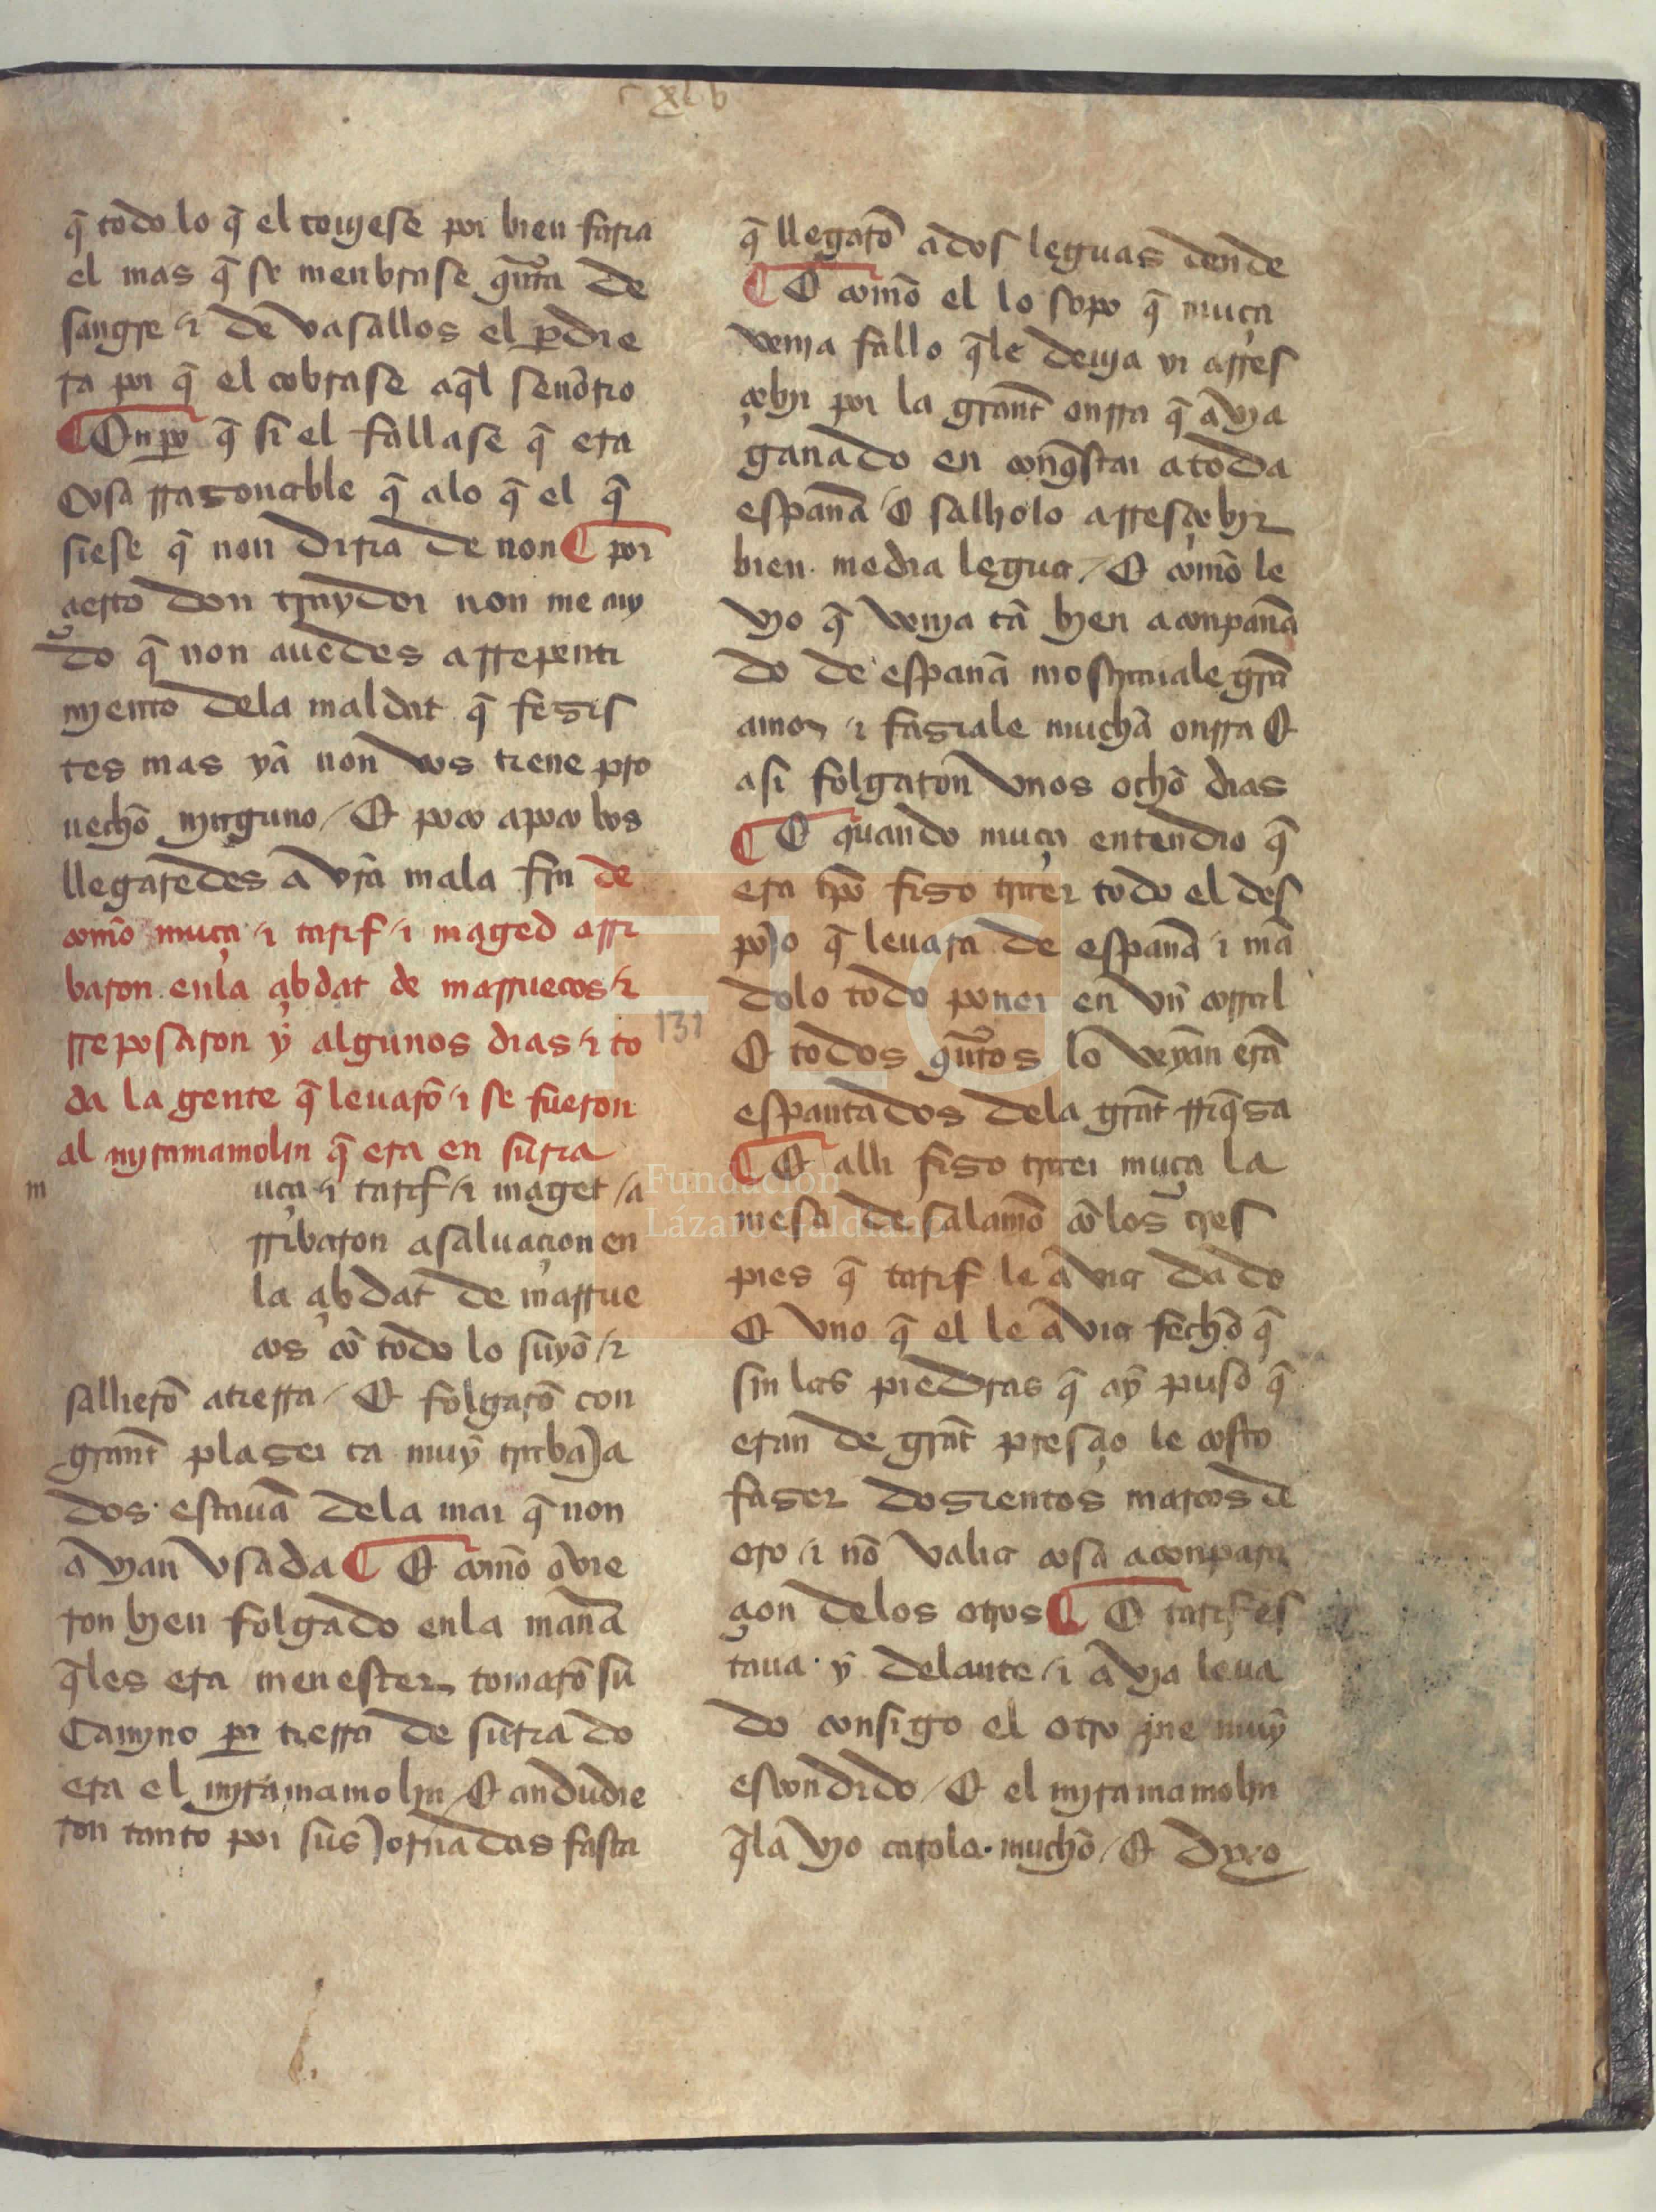 c xl b
q̃ todo lo q̃ el touyese por bien faria
el mas q̃ se menbrase q̃nta de
sangre ⁊ de vasallos el perdie
ra por q̃ el cobrase aq̃l señorio
¶ Enpero q̃ si el fallase q̃ era
cosa rrasonable q̃ a lo q̃ el q̃
siese q̃ non diria de non ¶ por
çierto don traydor non me cuy
do q̃ non auedes arrepenti
myento dela maldat q̃ fesis
tes mas ya non vos tiene pro
uecho ninguno / Et poco a poco vos
llegaredes a vr̃a mala fyn de
como muça ⁊ tarif ⁊ maged arri
baron enla çibdat de marruecos ⁊
rreposaron y algunos dias ⁊ to
da la gente q̃ leuarõ ⁊ se fueron
al myramamolin q̃ era en suria
m uça ⁊ tarif ⁊ maget / a
rribaron a saluaçion en
la çibdat de marrue
cos cõ todo lo suyo / ⁊
sallierõ a tierra / Et folgarõ con
grant plaser ca muy trabaja
dos estauã dela mar q̃ non
avyan vsada ¶ Et como ovie
ron byen folgado enla manã
q̃les era menester tomarõ su
camyno por tierra de suria do
era el myramamolin / Et andudie
ron tanto por sus jornadas fasta
q̃ llegarõ a dos leguas dende
¶ E como el lo sopo q̃ muça
venya fallo q̃le deuya yr a rres
çebyr por la grant onrra q̃ avya
ganado en conq̃star a toda
españa / E salliolo a rresçebyr
bien media legua / E como le
vyo q̃ venya tã byen aconpaña
do de españa mostraua le grã
amor ⁊ fasiale mucha onrra E
asi folgaron vnos ocho dias
¶ E quando muça entendio q̃
era tp̃o fiso traer todo el des
pojo q̃ leuara de españa ⁊ mã
dolo todo poner en vn corral
E todos q̃ntos lo veyan erã
espantados dela grãt rriq̃sa
¶ E alli fiso traer muça la
mesa de salamõ cõ los tres
pies q̃ tarif le avia dado
E vno q̃ el le avia fecho q̃
sin las piedras q̃ ay puso q̃
eran de grãt presçio le costo
faser dosientos marcos de
oro ⁊ nõ valia cosa a conpara
çion delos otros ¶ E tarif es
taua y delante ⁊ avya leua
do consigo el otro pie muy
escondido / E el myramamolin
q̃la vyo catola mucho / E dyxo
131
FLG
Fundación
Lázaro Galdiano